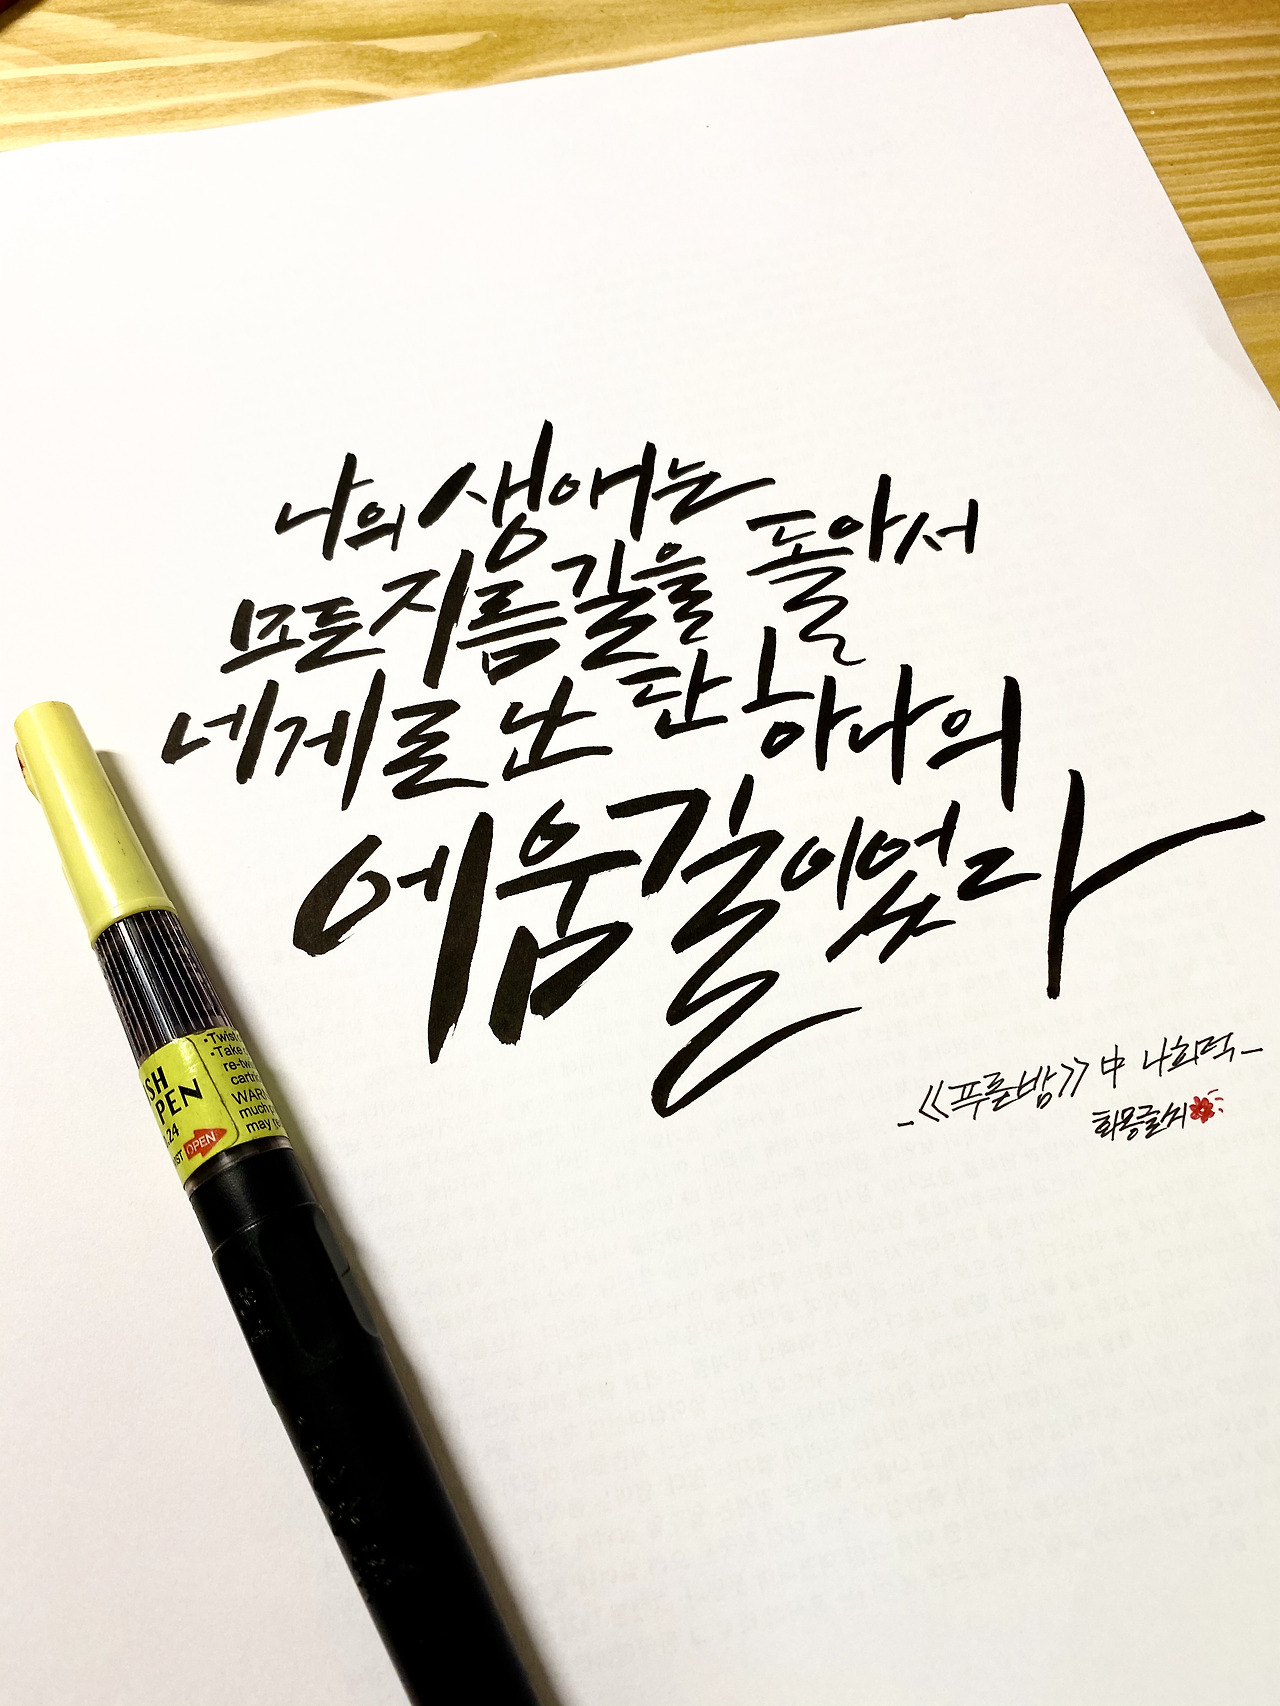 나의 생애는
모든 지름길을 돌아서
네게로 난 단 하나의
에움길이었다
-《푸른밤》中 나희덕-
화몽글씨
·Twist
·Take
re-tw
cartri
WAR
much p
may re
SH
PEN
.24
IST OPEN